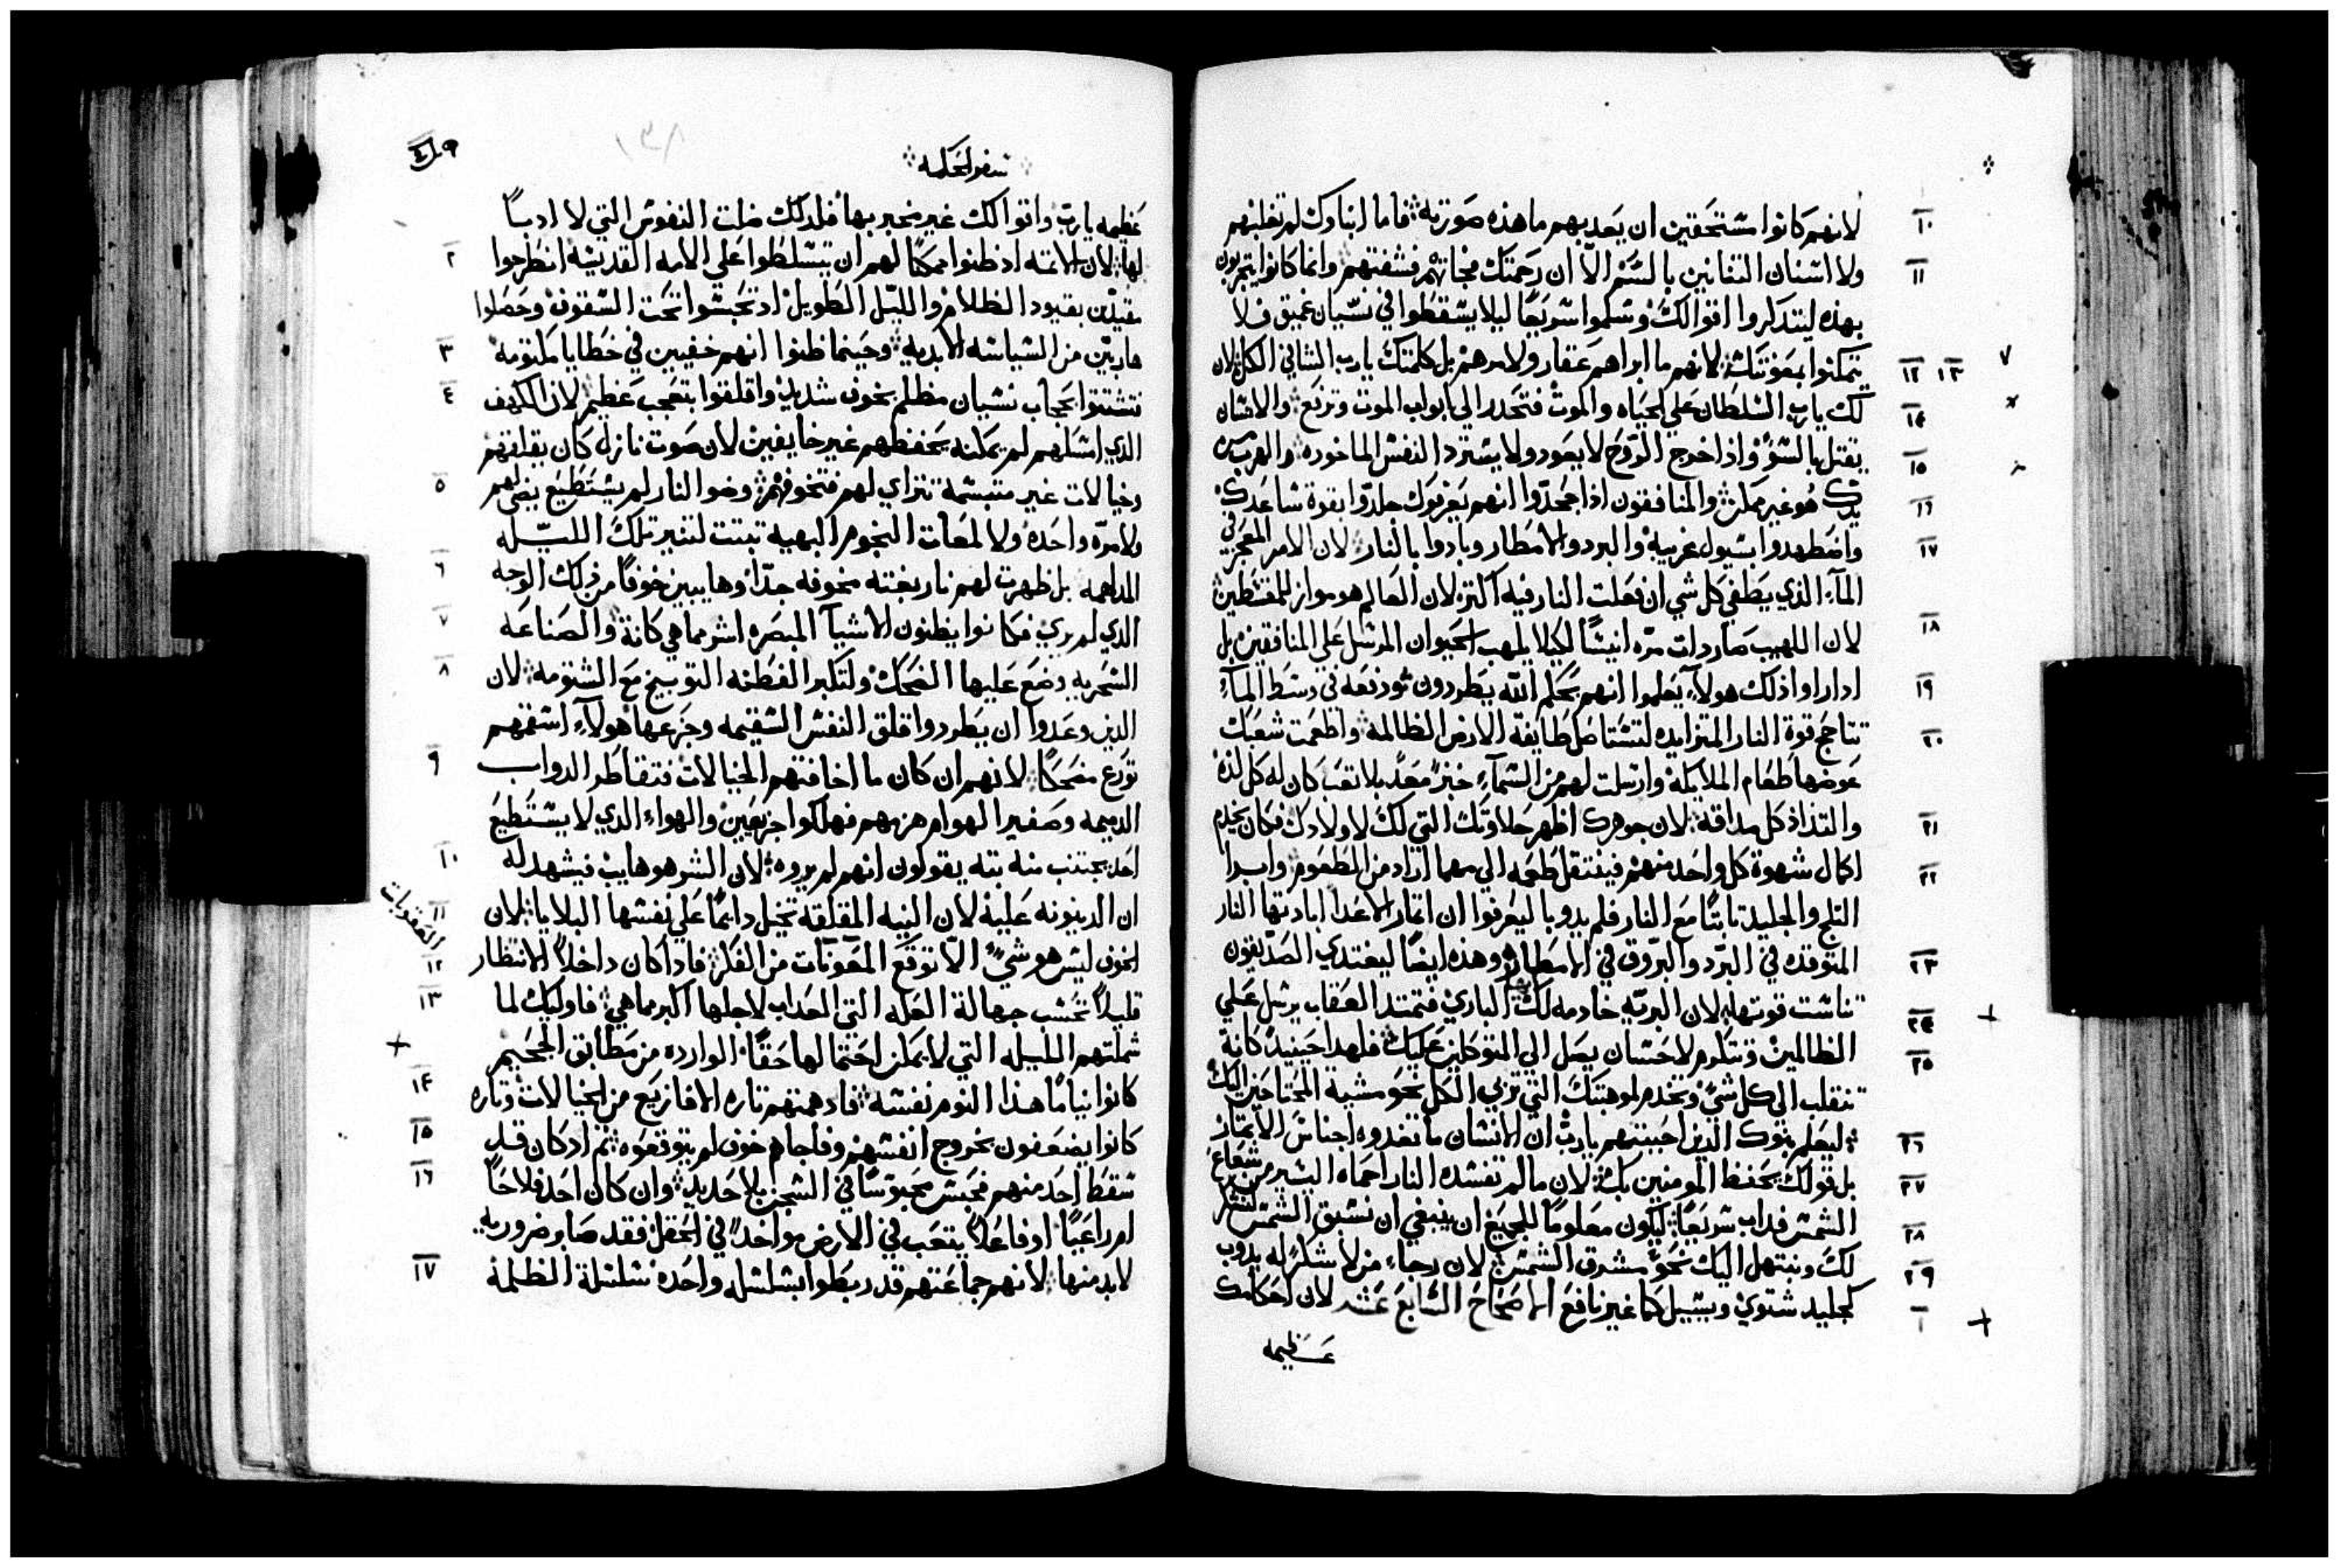 لانهم كانوا مستحقين ان يعذبهم ما هذه صورته فاما ابناوك لم تغلبهم
ولا اسنان التنانين بالسم الا ان رحمتك فشفتهم وانما كانوا يتجربون
بهذه ليتذكروا اقوالك وسلموا سريعًا ليلا يسقطوا في نسيان عميق فلا
يتمكنوا بمعونتك لانهم ما ابراهم عقار ولا مرهم بل كلمتك يارب الشافي الكل لان
لك يارب السلطان علي الحياه والموت فتحدر الي ابواب الموت وترفع والانسان
يقتل بالسؤ واذا خرج الروح لا يعود ولا يسترد النفس الماخوذه والهرب من
يدك هو غير ممكن والمنافقون اذا جحدوا انهم يعرفوك جلدوا بقوة ساعدك
واضطهدوا بسيول غريبة والبرد والامطار وبادوا بالنار لان الامر المعجز في
الماء الذي يطفي كل شي ان فعلت النار فيه اكثر لان العالم هو موازر للمقسطين
لان اللهيب صار ذات مرّه انيسًا لكيلا يلهب الحيوان المرسل علي المنافقين بل
اذا راوا ذلك هولاء يعلموا انهم بحكم الله يطردون ودفعه في وسط الماء
تتاجج قوة النار المتزايده لتستاصل طايفة الارض الظالمة واطعمت شعبك
عوضها طعام الملايكة وارسلت لهم من السماء خبزًا معدًا بلا تعب كان له كل لذة
والتذاذ كل مذاقة لان جوهرك اظهر حلاوتك التي لك لاولادك فكان يخدم
اكمال شهوة كل واحد منهم فينتقل طعمه الي مهما اراد من المطعوم
الثلج والجليد ثابتًا مع النار فلم يذوبا ليعرفوا ان اثمار الاعدا ابادتها النار
المتوقده في البرد والبروق في الامطار وهذه ايضًا ليغتذي الصديقون
تناست قوتها لان البريّه خادمه لك الباري فتمتد العقاب يرسل علي
الظالمين وتتكرم لاحسان يصل الي المتوكلين عليك فلهذا حينيذ كانة
تنقلب الي كل شي وتخدم لموهبتك التي تربي الكل نحو مشية المحتاجين اليك
ليعلم بنوك الذين احببتهم يارب ان الانسان ما تغذوه اجناس الاثمار
بل قولك يحفظ المومنين بك لان ما لم تفسده النار احماه اليسير من شعاع
الشمس فذاب سريعًا ليكون معلومًا للجميع ان ينبغي ان نسبق الشمس لنشكر
لك ونبتهل اليك نحو مشرق الشمس لان رجاء من لا شكر له يذوب
كجليد شتوي ويسيل كما غير نافع الاصحاح السابع عشر لان احكامك
عظيمه
سفر الحكمه
١٣٨
عظيمه يارب واقوالك غير مخبر بها فلذلك ضلت النفوس التي لا ادبًا
لها لان الاثمة اذ ظنوا ممكنًا لهم ان يتسلطوا علي الامه القديسة انطرحوا
مقيدين بقيود الظلام والليل الطويل اذ تحبسوا تحت السقوف وحصلوا
هاربين من السياسه الابديه وحينما ظنوا انهم خفيين في خطايا مكتومه
تشتتوا بحجاب نسيان مظلم بخوف شديد واقلقوا بتعجب عظيم لان الكهف
الذي امسكهم لم يمكنه يحفظهم غير خايفين لان صوت نازل كان يقلقهم
وخيالات غير متبسمة تتراي لهم فتخوفهم وضو النار لم يستطيع يضي لهم
ولا مرّه واحدة ولا لمعات النجوم البهيه تبتت لتنير تلك الليله
المدلهمه بل ظهرت لهم نار بغتة مخوفه جدًا وهايبين خوفًا من ذلك الوجه
الذي لم يري فكانوا يظنون الاشيآ المبصره اشر مما هي كانة والصناعه
السحريه وضع عليها الضحك ولتكبر الفطنه التوبيخ مع الشتومه لان
الذين وعدوا ان يطردوا قلق النفس السقيمه وجزعها هولاء اسقمهم
تورع مضحكًا لانهم ان كان ما اخافتهم الخيالات فتقاطر الدواب
الدميمه وصفير الهوام هزمهم فهلكوا جزعين والهواء الذي لا يستطيع
احد يجتنب منه بته يقولون انهم لم يروه لان الشر هو هايب فيشهد له
ان الدينونه علية لان النيه المقلقة تخيل دايمًا علي نفسها البلايا لان
الخوف ليس هو شيً الا توقع المعونات من الفكر فاذا كان داخلاً الانتظار
قليلاً تحسب جهالة العله التي العذاب لاجلها اكبر مما هي فاوليك لما
شملتهم الليله التي لا يمكن احتمالها حقًا الوارده من مطابق الجحيم
كانوا نيامًا هذا النوم نفسه فادهمتهم تاره الافازيع من الخيالات وتاره
كانوا يضعفون بخروج انفسهم وفاجاهم خوف لم يتوقعوه ثم اذ كان قد
سقط احد منهم فيحبس محبوسًا في السجن بلا حديد وان كان احد فلاحًا
ام راعيًا او فاعلاً يتعب في الارض مواخذً في الحقل فقد صابر ضروريه
لابد منها لانهم جماعتهم قد ربطوا بسلسله واحده سلسلة الظلمة
العقوبات